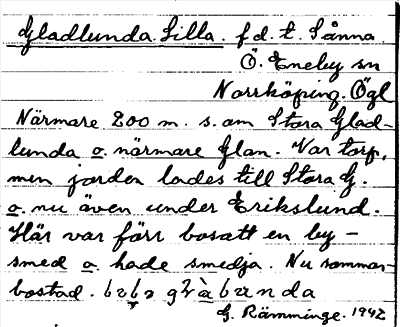 Gladlunda Lilla. f.d. t. Sänna
Ö. Eneby sn
Norrköping. Ögl
Närmare 200 m. s. om Stora Glad-
lunda o. närmare Glan. Var torp,
men jorden lades till Stora G.
o. nu även under Erikslund.
Här var förr bosatt en by-
smed o. hade smedja. Nu sommar-
bostad.
G. Rämminge. 1942